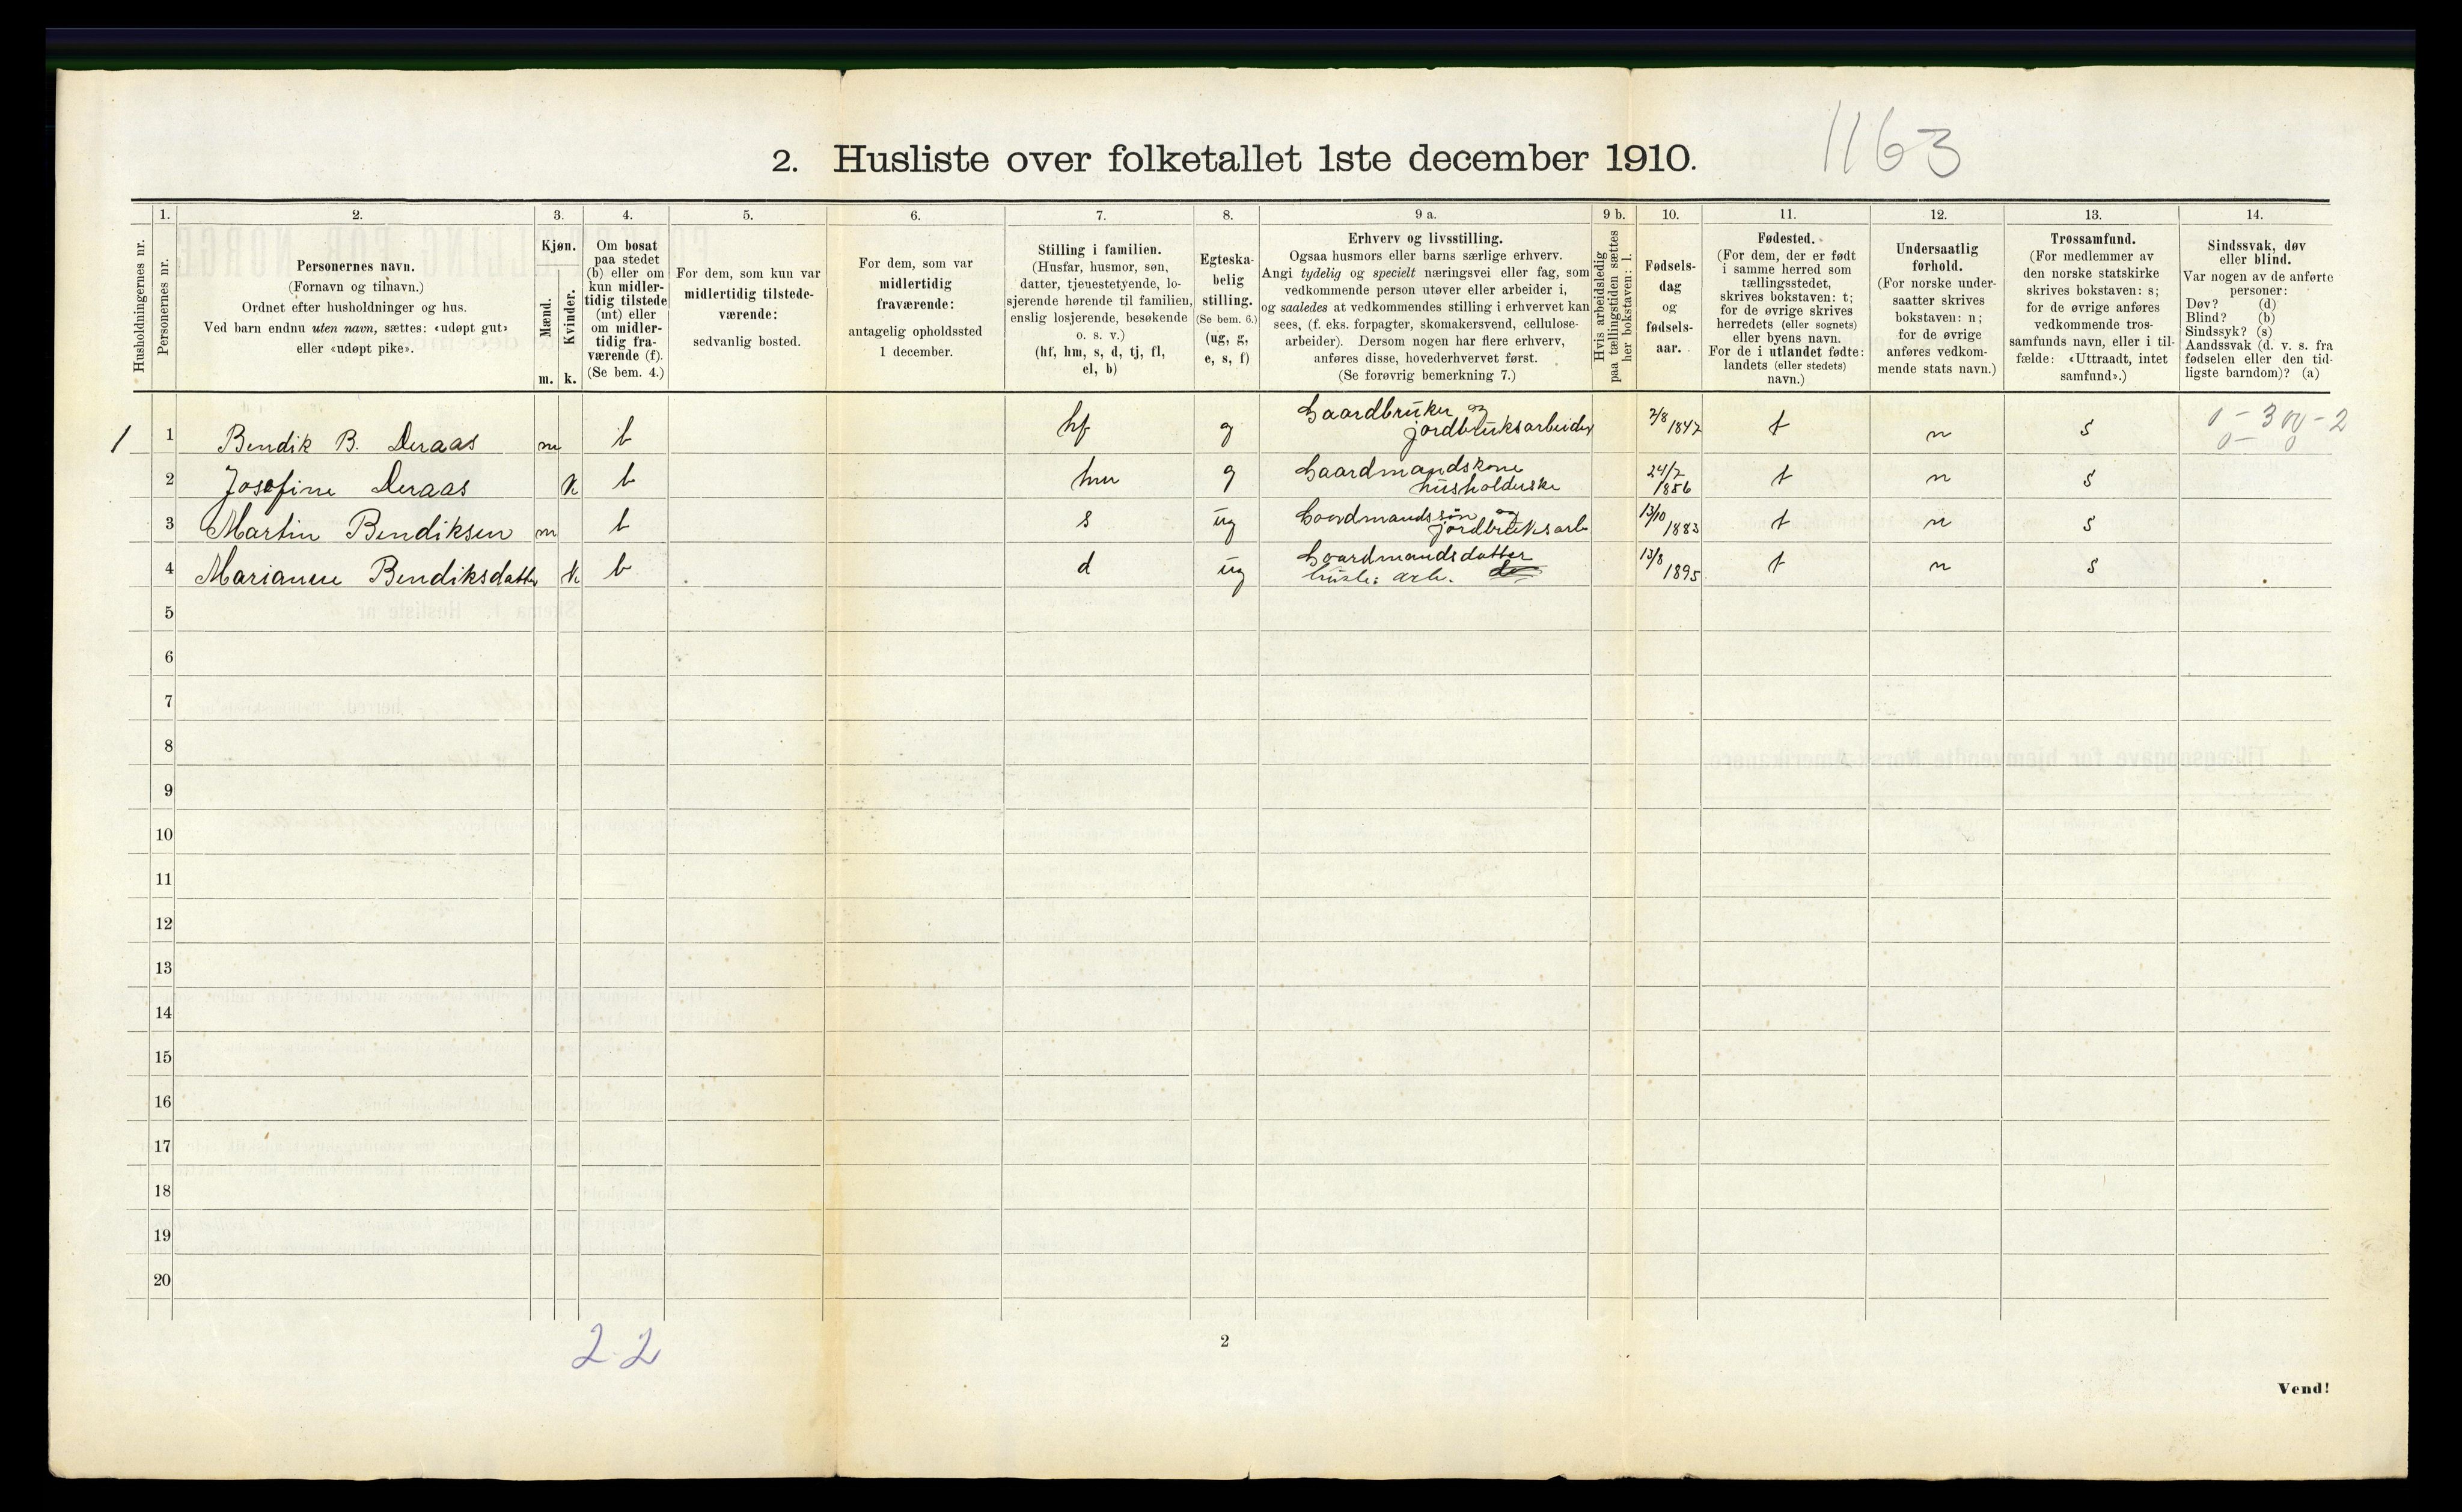 1163
2. Husliste over folketallet 1ste december 1910.
1. 2. 3. 4. 5. 6. 7. 8. 9 a. 9 b. 10. 11. 12. 13. 14.
Husholdningernes nr.
Personernes nr.
Personernes navn.
(Fornavn og tilnavn.)
Ordnet efter husholdninger og hus.
Ved barn endnu uten navn, sættes: «udøpt gut»
eller «udøpt pike».
Kjøn.
Mænd.
Kvinder.
m. k.
Om bosat
paa stedet
(b) eller om
kun midler-
tidig tilstede
(mt) eller
om midler-
tidig fra-
værende (f).
(Se bem. 4.)
For dem, som kun var
midlertidig tilstede-
værende:
sedvanlig bosted.
For dem, som var
midlertidig
fraværende:
antagelig opholdssted
1 december.
Stilling i familien.
(Husfar, husmor, søn,
datter, tjenestetyende, lo-
sjerende hørende til familien,
enslig losjerende, besøkende
o. s. v.)
(hf, hm, s, d, tj, fl,
el, b)
Egteska-
belig
stilling.
(Se bem. 6.)
(ug, g,
e, s, f)
Erhverv og livsstilling.
Ogsaa husmors eller barns særlige erhverv.
Angi tydelig og specielt næringsvei eller fag, som
vedkommende person utøver eller arbeider i,
og saaledes at vedkommendes stilling i erhvervet kan
sees, (f. eks. forpagter, skomakersvend, cellulose-
arbeider). Dersom nogen har flere erhverv,
anføres disse, hovederhvervet først.
(Se forøvrig bemerkning 7.)
Hvis arbeidsledig
paa tællingstiden sættes
her bokstaven: l.
Fødsels-
dag
og
fødsels-
aar.
Fødested.
(For dem, der er født
i samme herred som
tællingsstedet,
skrives bokstaven: t;
for de øvrige skrives
herredets (eller sognets)
eller byens navn.
For de i utlandet fødte:
landets (eller stedets)
navn.)
Undersaatlig
forhold.
(For norske under-
saatter skrives
bokstaven: n;
for de øvrige
anføres vedkom-
mende stats navn.)
Trossamfund.
(For medlemmer av
den norske statskirke
skrives bokstaven: s;
for de øvrige anføres
vedkommende tros-
samfunds navn, eller i til-
fælde: «Uttraadt, intet
samfund».)
Sindssvak, døv
eller blind.
Var nogen av de anførte
personer:
Døv? (d)
Blind? (b)
Sindssyk? (s)
Aandssvak (d. v. s. fra
fødselen eller den tid-
ligste barndom)? (a)
1 1 Bendik B. Deraas m b hf g Gaardbruker og jordbruksarbeider 2/8 1847 t n s
2 Josefine Deraas k b hm g Gaardmandskone husholderske 24/7 1856 t n s
3 Martin Bendiksen m b s ug Gaardmandssøn og jordbruksarb 13/10 1883 t n s
4 Marianne Bendiksdatter k b d ug Gaardmandsdatter husl: arb. 13/8 1895 t n s
5
6
7
8
9
10
11
12
13
14
15
16
17
18
19
20
2 2
2
Vend!